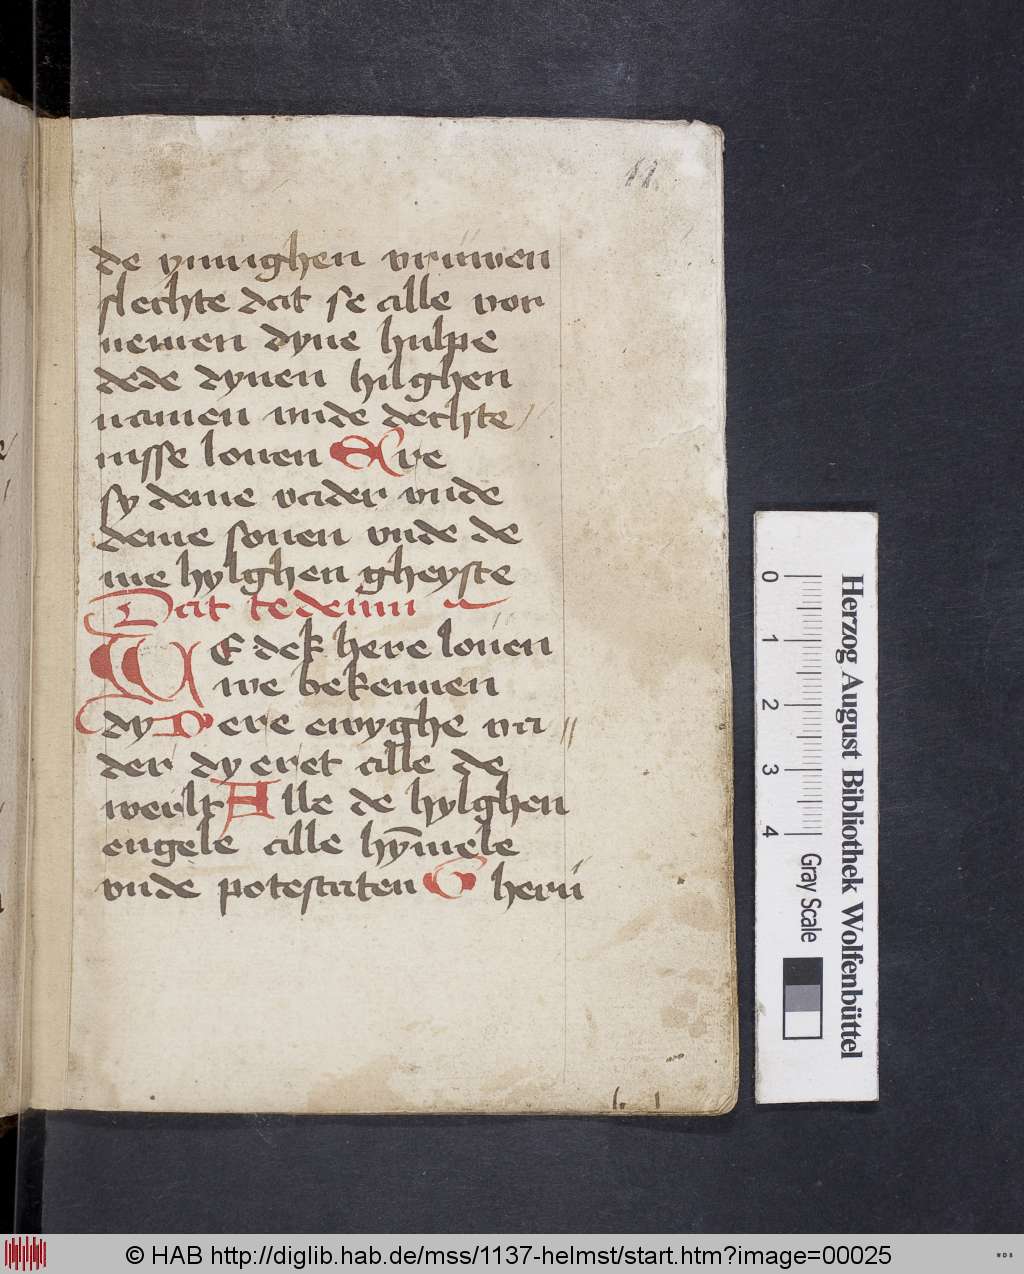 11
de ynnighen vruwen
slechte dat se alle vor
nemen dyne hulpe
dede dynen hilghen
namen vnde dechte
nisse louen Ere
sy deme vader vnde
deme sonen vnde de
me hylghen gheyste
Dat te deum
WE dek here louen
we bekennen
dy Dere ewyghe va
der dy eret alle de
werlt Alle de hylghen
engele alle hȳmele
vnde potestaten herú
0 1 2 3 4
Gray Scale
Herzog August Bibliothek Wolfenbüttel
© HAB http://diglib.hab.de/mss/1137-helmst/start.htm?image=00025